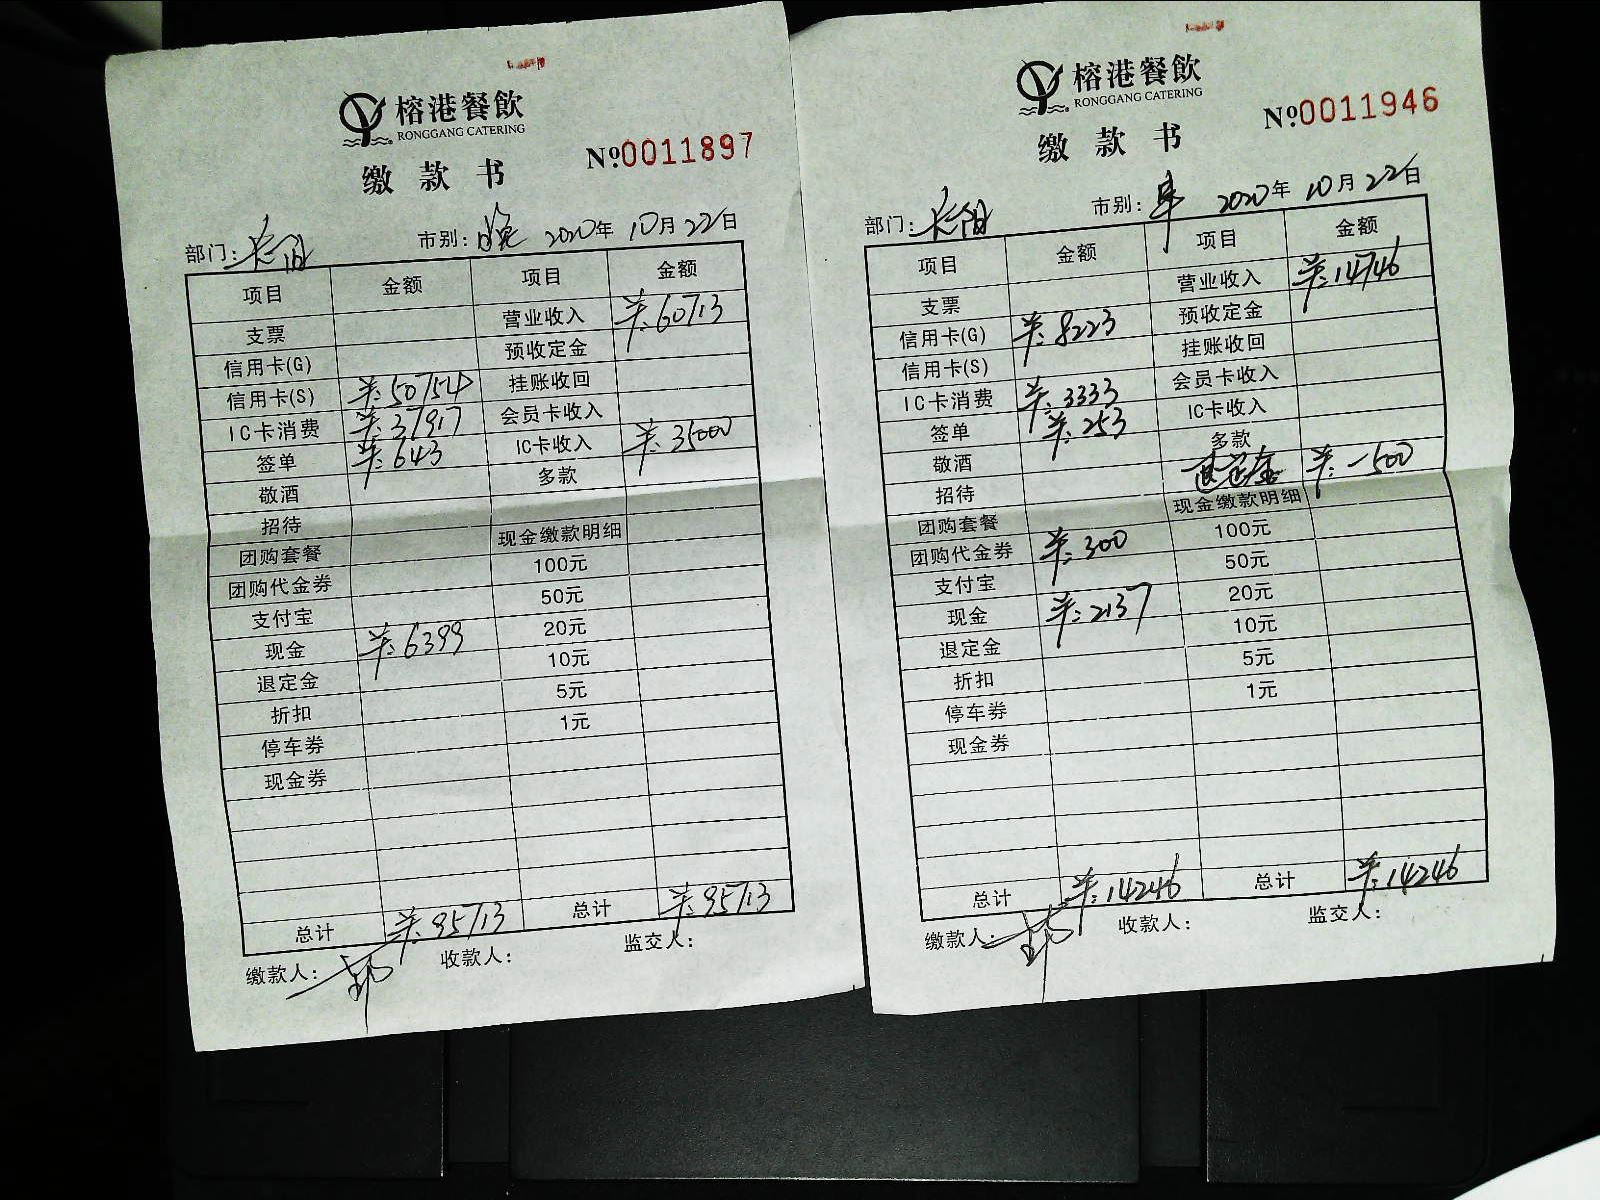 榕港餐飲
RONGGANG CATERING
缴款书
№0011897
部门: 市别: 晚 2020年 10月 22日
项目 金额 项目 金额
支票 营业收入 ¥:60713
信用卡(G) 预收定金
信用卡(S) ¥:50754 挂账收回
IC卡消费 ¥:37917 会员卡收入
签单 ¥:643 IC卡收入 ¥:35000
敬酒 多款
招待
团购套餐 现金缴款明细
团购代金券 100元
支付宝 50元
现金 ¥:6399 20元
退定金 10元
折扣 5元
停车券 1元
现金券
总计 ¥:95713 总计 ¥:95713
缴款人: 收款人: 监交人:
榕港餐飲
RONGGANG CATERING
缴款书
№0011946
部门: 市别: 早 2020年 10月 22日
项目 金额 项目 金额
支票 营业收入 ¥:14746
信用卡(G) ¥:8223 预收定金
信用卡(S) 挂账收回
IC卡消费 ¥:3333 会员卡收入
签单 ¥:253 IC卡收入
敬酒 多款
招待 退定金 ¥:-500
团购套餐 现金缴款明细
团购代金券 ¥:300 100元
支付宝 50元
现金 ¥:2137 20元
退定金 10元
折扣 5元
停车券 1元
现金券
总计 ¥:14246 总计 ¥:14246
缴款人: 收款人: 监交人: